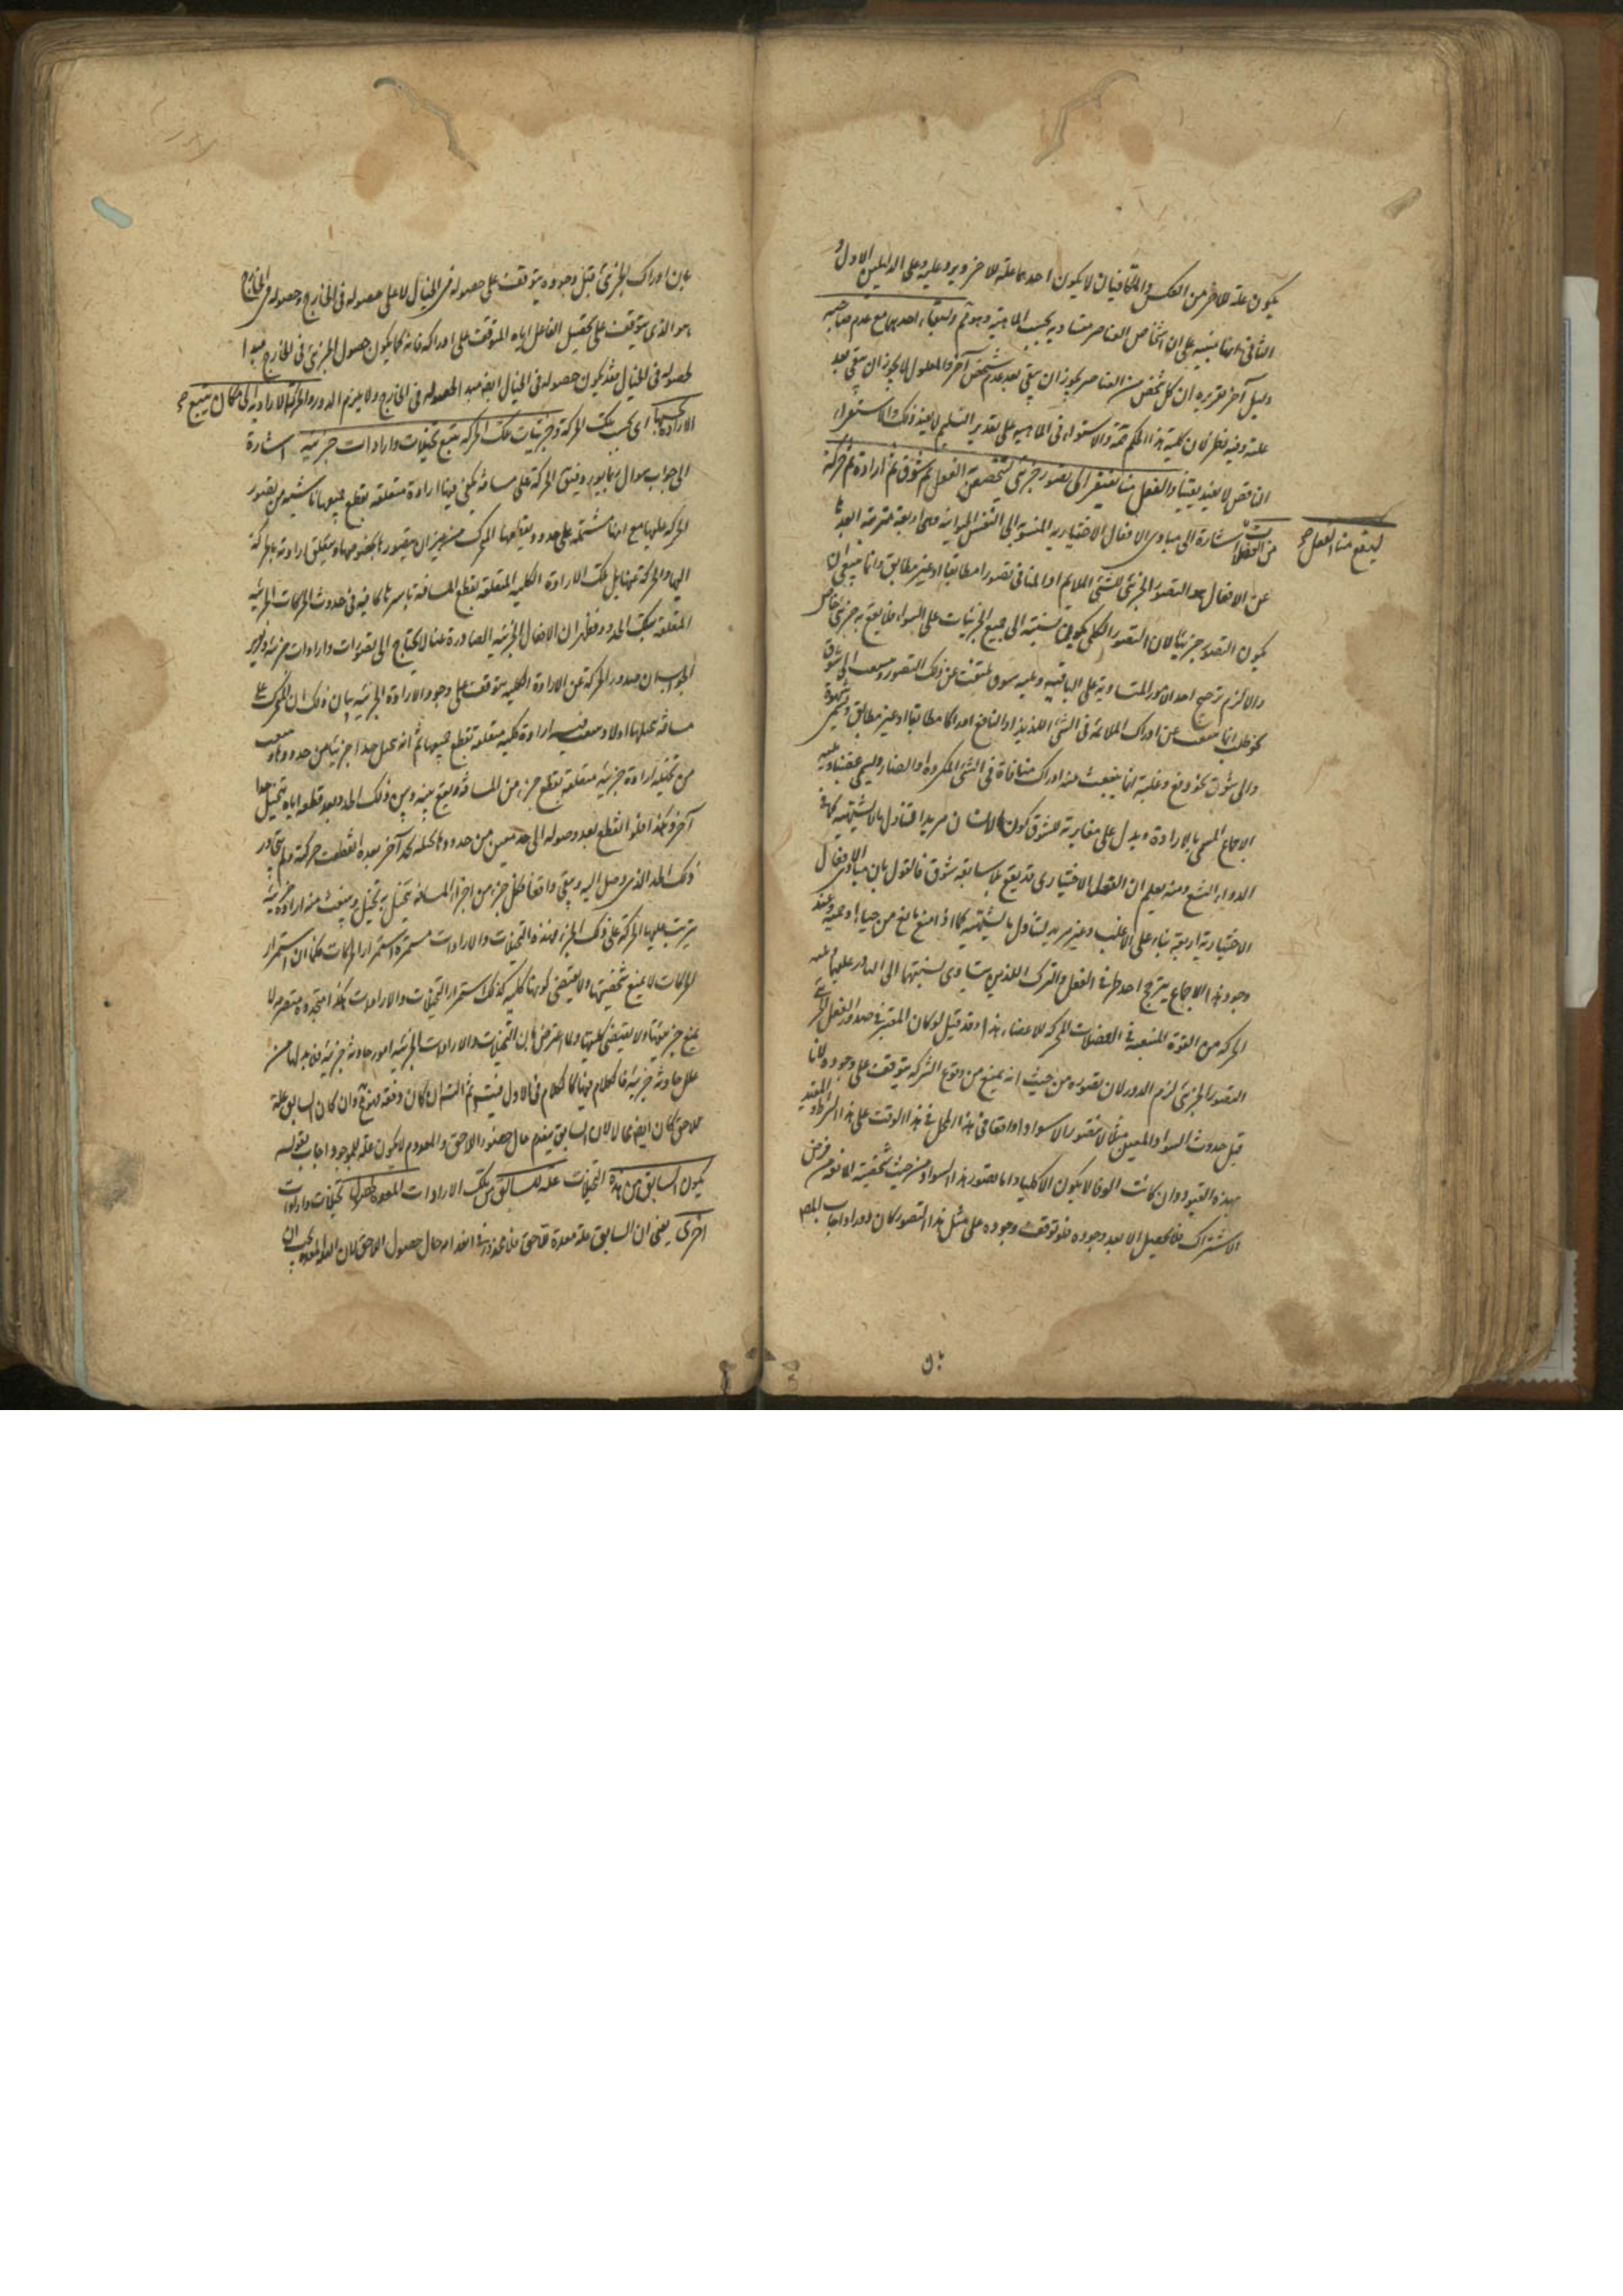 يكون علة للآخر من العكس والمتكافيان لا يكون احدهما علة للآخر ويرد عليه وعلى الدليلين الاول و
الثانى انها مبنية على ان اشخاص العناصر متساوية بحسب الماهية وهو ثم ولبقاء احديهما مع عدم صاحبه
دليل آخر تقريره ان كل شخص من العناصر يجوز ان يبقى بعد عدم شخص آخر والمعلول لا يجوز ان يبقى بعد
علته وفيه نظر فان كلية هذا الحكم ثمة والاستواء فى الماهية على تقدير التسليم لا يفيد ذلك والاستقراء
الناقص لا يفيد يقينا والفعل منا يفتقر الى تصور جزئى لتخصص الفعل ثم شوق ثم ارادة ثم حركة
من العضلات اشارة الى مبادى الافعال الاختيارية المنسوبة الى النفس الحيوانية وهى اربعة مترتبة ابعدها
ليقع منا الفعل صح
عن الافعال هو التصور الجزئى للشئ الملائم او المنافى تصورا مطابقا او غير مطابق وانما ينبغى ان
يكون التصور جزئيا لان التصور الكلى يكون نسبته الى جميع الجزئيات على السواء فلا يقع به جزئى خاص
والا لزم ترجيح احد الامور المتساوية على الباقية ويليه شوق ينبعث عن ذلك التصور وينشعب الى شوق
نحو طلب انما ينبعث عن ادراك الملائمة فى الشئ اللذيذ او النافع ادراكا مطابقا او غير مطابق ويسمى شهوة
والى شوق نحو دفع وغلبة انما ينبعث عن ادراك منافاة فى الشئ المكروه او الضار ويسمى غضبا ويليه
الاجماع المسمى بالارادة ويدل على مغايرته للشوق كون الانسان مريدا لتناول ما لا يشتهيه كما فى
الدواء البشع ومنه يعلم ان الفعل الاختيارى قد يقع بلا سابقة شوق فالقول بان مبادى الافعال
الاختيارية اربعة بناء على الاغلب وغير مريد لتناول ما يشتهيه كما اذا منع مانع من حياء او حمية وعند
وجود هذا الاجماع يترجح احد طرفى الفعل والترك اللذين يتساوى نسبتهما الى القادر عليهما ويليه
الحركة من القوة المنبعثة فى العضلات المحركة للاعضاء هذا وقد قيل لو كان المعتبر فى صدور الفعل الجزئى
التصور الجزئى لزم الدور لان تصوره من حيث انه يمنع من وقوع الشركة يتوقف على وجوده لانا
قبل حدوث السواد المعين مثلا لا نتصور الا سوادا واقعا فى هذا المحل فى هذا الوقت على هذا الشرط والمقيد
بهذه القيود وان كانت الوفا لا يكون الا كليا واما تصور هذا السواد من حيث شخصيته المانعة من فرض
الاشتراك فلا يحصل الا بعد وجوده فلو توقف وجوده على مثل هذا التصور كان دورا واجاب المصـ
بان
بان ادراك الجزئى قبل وجوده يتوقف على حصوله فى الخيال لا على حصوله فى الخارج وحصوله فى الخارج
هو الذى يتوقف على تحصيل الفاعل اياه المتوقف على ادراكه فانه كما يكون حصول الجزئى فى الخارج مبدا
لحصوله فى الخيال فقد يكون حصوله فى الخيال ايضا مبدا لحصوله فى الخارج ولا يلزم الدور والحركة الارادية الى مكان يتبع صح
الارادة بحسبها اى بحسب تلك الحركة وجزئيات تلك الحركة يتبع تخيلات وارادات جزئية اشارة
الى جواب سوال ربما يورد وهو ان الحركة على مسافة يكفى فيها ارادة متعلقة بقطع جميعها ناشية من تصور
الحركة عليها مع انها مشتملة على حدود يقطعها المتحرك من غير ان يتصورها بخصوصها ويتعلق ارادته بالحركة
اليها والحركة عنها بل تلك الارادة الكلية المتعلقة بقطع المسافة باسرها كافية فى حدوث الحركات الجزئية
المتعلقة بتلك الحدود فظهر ان الافعال الجزئية الصادرة عنا لا تحتاج الى تصورات وارادات جزئية وتقرير
الجواب ان صدور الحركة عن الارادة الكلية يتوقف على وجود الارادة الجزئية بيان ذلك ان المتحرك على
مسافة تخيلها اولا وينبعث منه ارادة كلية متعلقة بقطع جميعها ثم انه تخيل حدا جزئيا من حدودها وينبعث
من تخيله ارادة جزئية متعلقة بقطع جزء من المسافة وقع بينه وبين ذلك الحد وبعد قطعه اياه يتخيل حدا
آخر وهكذا فلو انقطع بعد وصوله الى حد معين من حدودها تخيله لحد آخر بعده انقطعت حركته ولم يتجاوز
ذلك الحد الذى وصل اليه وبقى واقفا فكل جزء من اجزاء المسافة يتخيل به تخيل وينبعث منه ارادة جزئية
يترتب عليها الحركة على ذلك الجزء فهذه التخيلات والارادات مستمرة استمرار الحركات فكما ان استمرار
الحركات لا يمنع شخصيتها ولا يقتضى كونها كلية كذلك استمرار التخيلات والارادات هكذا متجددة متصرمة لا
يمنع جزئيتها ولا يقتضى كليتها ولما اعترض بان التخيلات والارادات الجزئية امور حادثة جزئية فلا بد لها من
علل حادثة جزئية فالكلام فيها كالكلام فى الاول فيتسلسل ثم التسلسل ان كان دفعة وان كان السابق علة
للاحق كان ايضا محالا لان السابق ينعدم حال حضور اللاحق والمعدوم لا يكون علة للموجود اجاب بقوله
يكون السابق من هذه التخيلات علة للسابق من تلك الارادات المعدة لحصول تخيلات وارادات
اخرى يعنى ان السابق علة معدة للاحق فلا محذور فى انعدامه حال حصول اللاحق لان العلة المعدة يجب ان